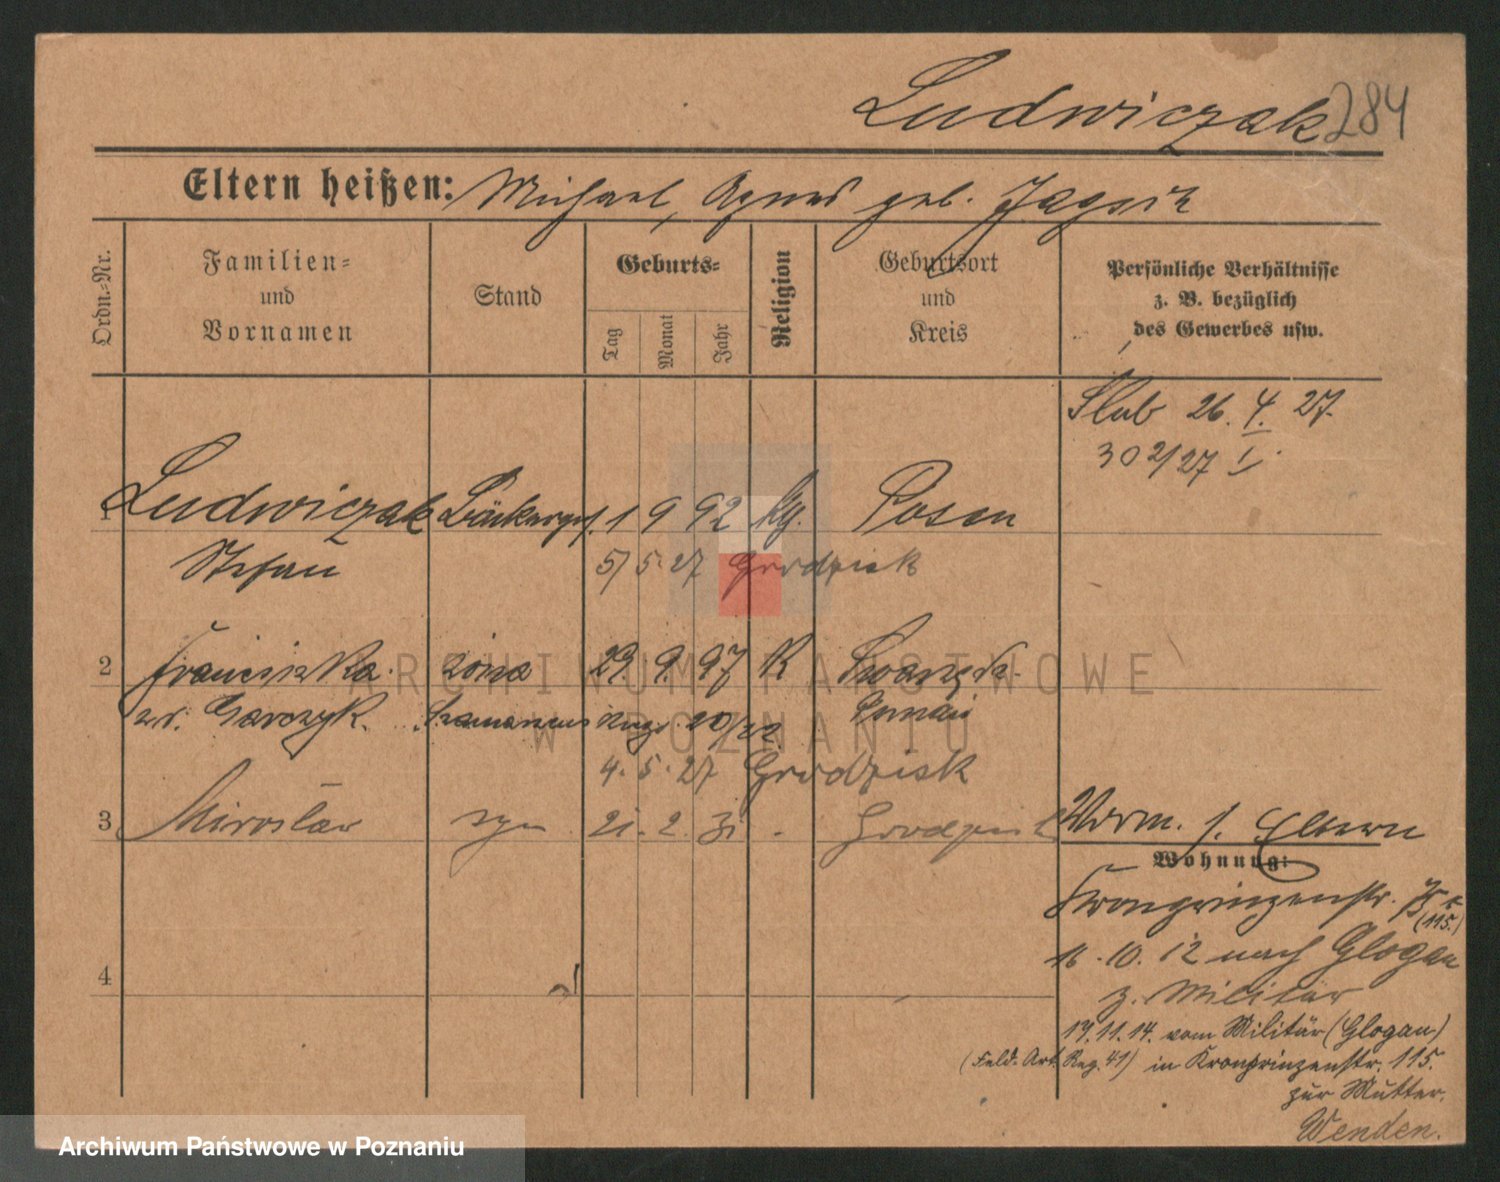 Ludwiczak 284
Eltern heißen: Michael, Agnes geb.
Ordn.-Nr.
Familien-
und
Vornamen
Stand
Geburts-
Tag
Monat
Jahr
Religion
Geburtsort
und
Kreis
Persönliche Verhältnisse
z. B. bezüglich
des Gewerbes usw.
Ślub 26. 4. 27.
302/27 I.
1 Ludwiczak Bäckerges. 1 9 92 kg. Posen
Stefan 5/ 5. 27 Grodzisk
2 Franciszka żona 29. 9. 97 K
z d. Garczyk 20/22 Poznań
4. 5. 27 Grodzisk
3 Mirosław syn 21. 2. 31 Grodzisk
Worm. s. Eltern
Wohnung:
Kronprinzenstr.
(115.)
16. 10. 12 nach Glogau
z. Militär
4
19. 11. 14. vom Militär (Glogau)
(Feld-Art. Reg. 41) in Kronprinzenstr. 115.
zur Mutter.
Wenden.
ARCHIWUM PAŃSTWOWE
W POZNANIU
Archiwum Państwowe w Poznaniu